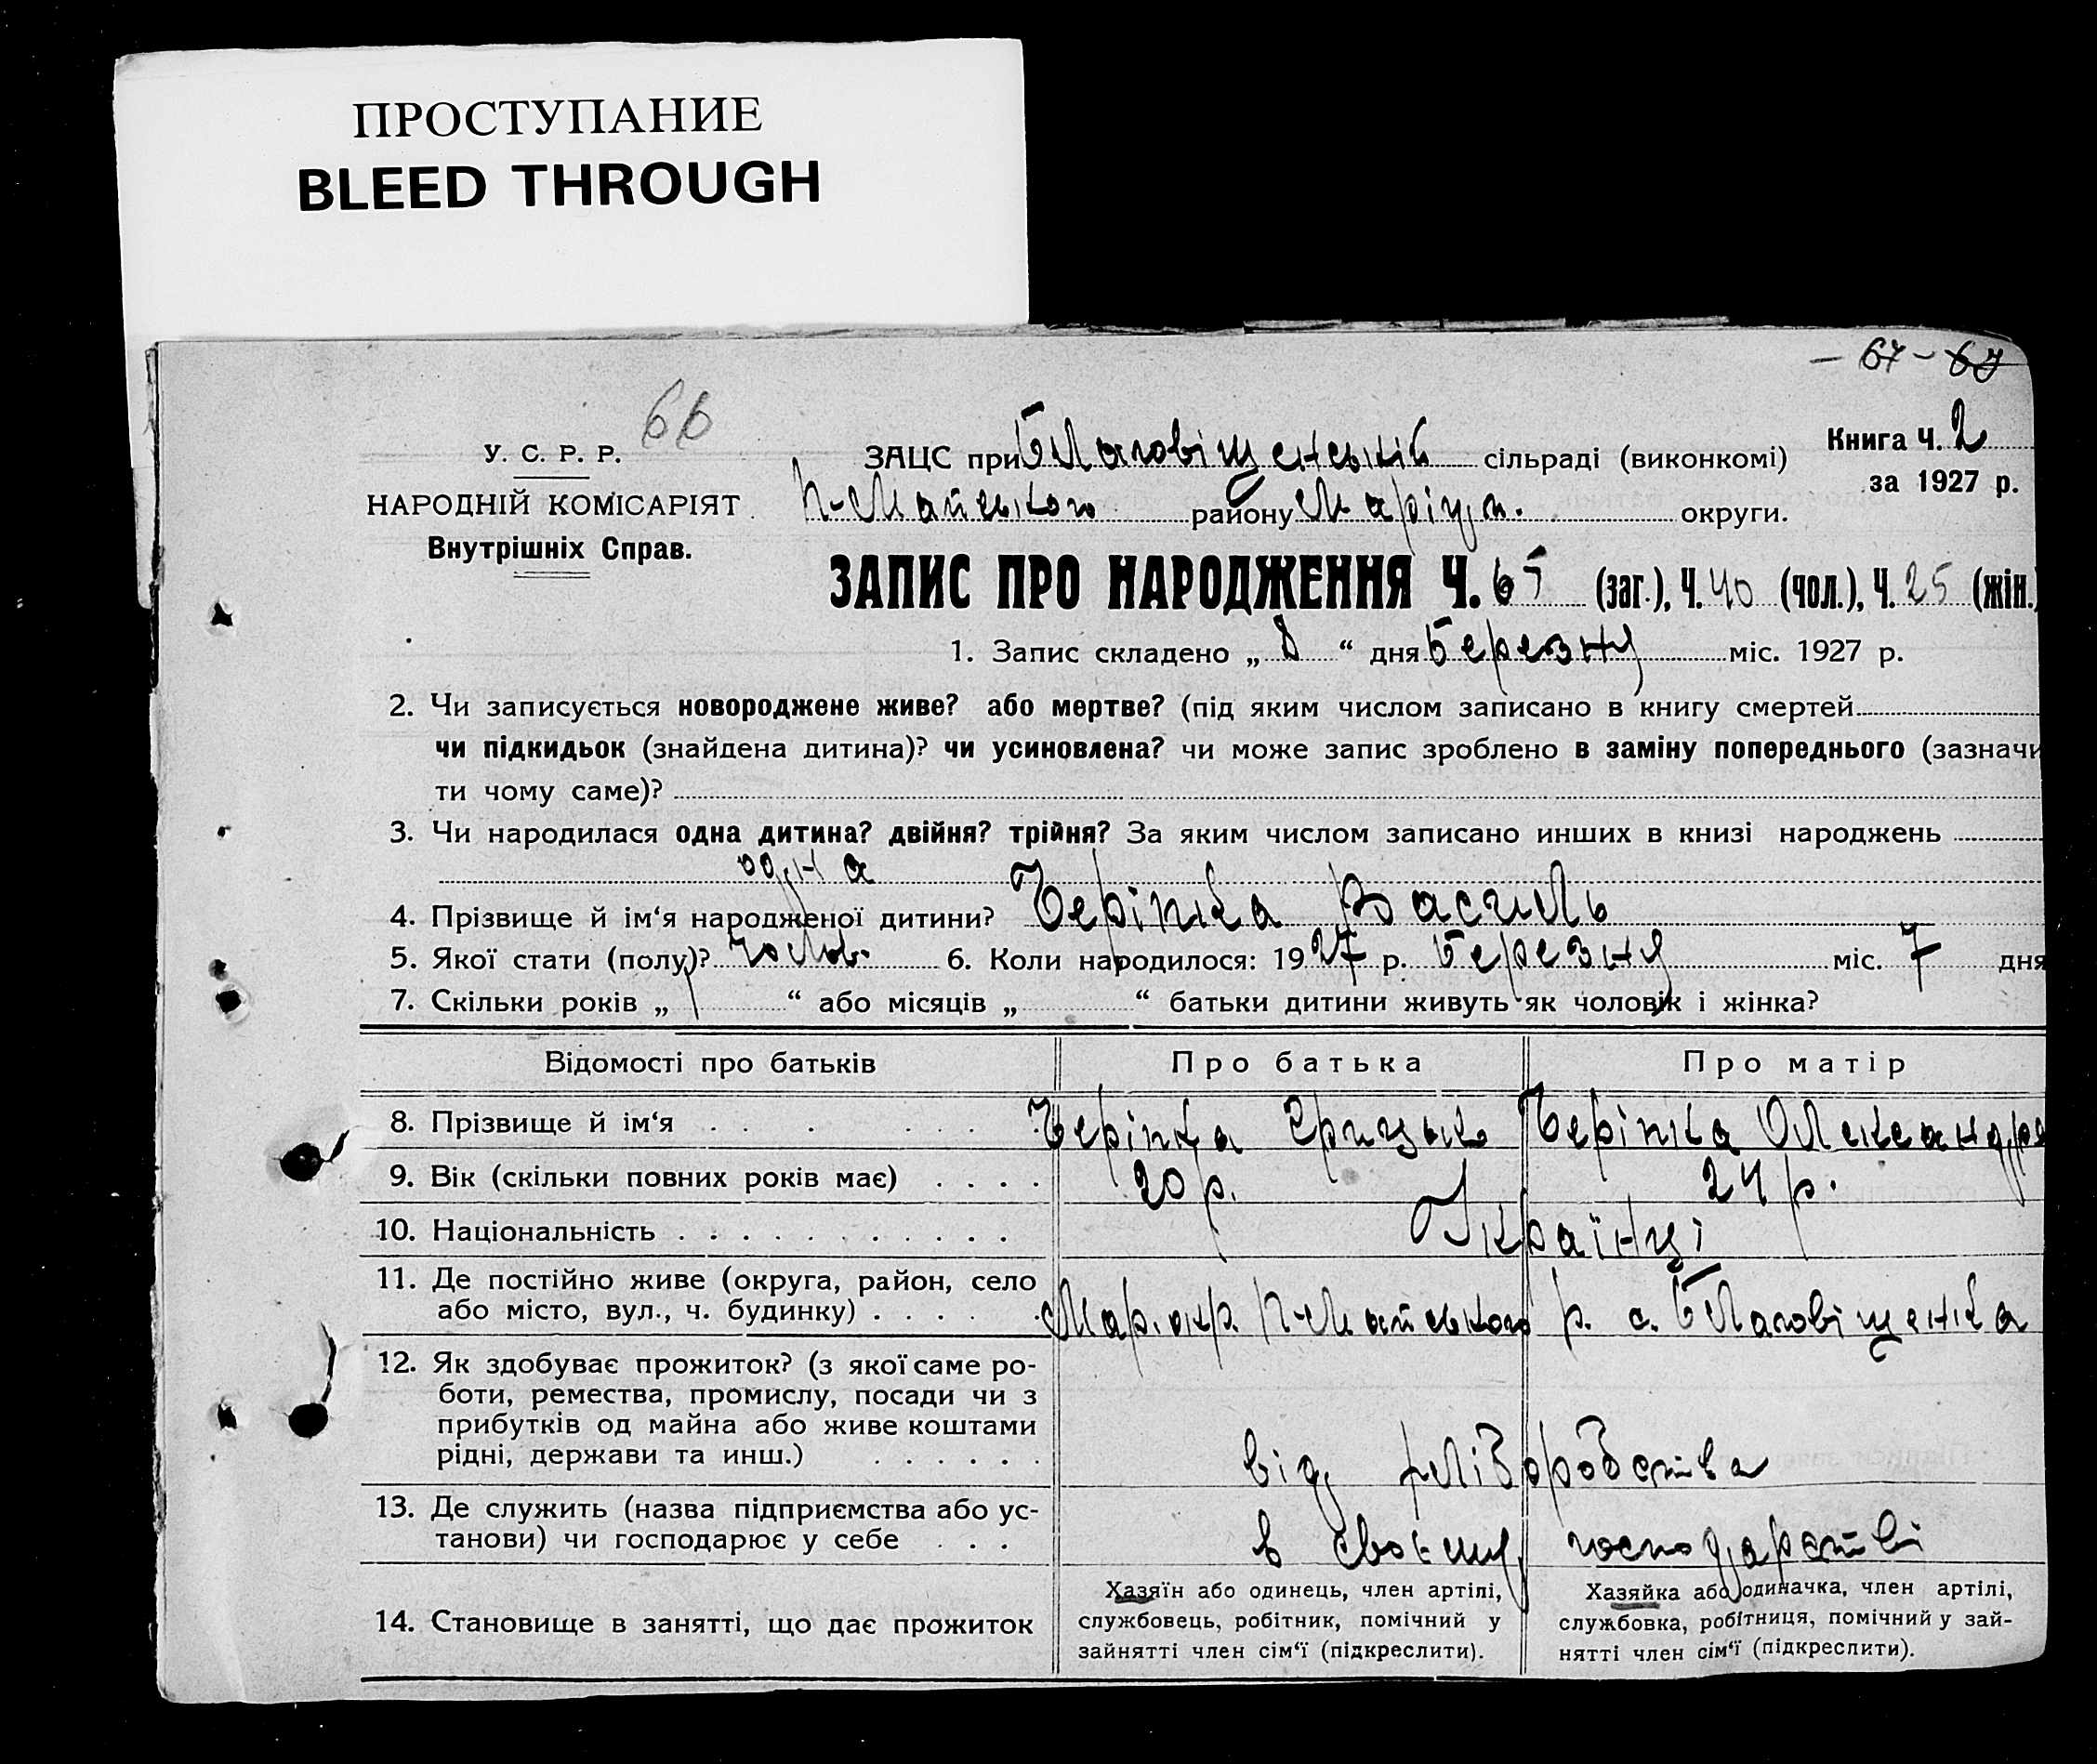 ПРОСТУПАНИЕ
BLEED THROUGH
— 67 — 67
66
У. С. Р. Р.
НАРОДНІЙ КОМІСАРІЯТ
Внутрішніх Справ.
ЗАЦС при Благовіщенській сільраді (виконкомі)
Книга Ч. 2
за 1927 р.
П-Майського району Маріуп. округи.
ЗАПИС ПРО НАРОДЖЕННЯ Ч. 65 (заг.), Ч. 40 (чол.), Ч. 25 (жін.)
1. Запис складено „ 8 “ дня Березня міс. 1927 р.
2. Чи записується новороджене живе? або мертве? (під яким числом записано в книгу смертей
чи підкидьок (знайдена дитина)? чи усиновлена? чи може запис зроблено в заміну попереднього (зазначи
ти чому саме)?
3. Чи народилася одна дитина? двійня? трійня? За яким числом записано инших в книзі народжень
одна
4. Прізвище й ім‘я народженої дитини? Черіпка Василь
5. Якої стати (полу)? чолов. 6. Коли народилося: 1927 р. Березня міс. 7 дня
7. Скільки років „ 1 “ або місяців „ “ батьки дитини живуть як чоловік і жінка?
Відомості про батьків Про батька Про матір
8. Прізвище й ім‘я Черіпка Грицько Черіпка Олександра
9. Вік (скільки повних років має) 20 р. 24 р.
10. Національність Українці
11. Де постійно живе (округа, район, село
або місто, вул., ч. будинку) Мар. окр. П-Майського р. с. Благовіщенка
12. Як здобуває прожиток? (з якої саме ро-
боти, ремества, промислу, посади чи з
прибутків од майна або живе коштами
рідні, держави та инш.) від хліборобства
13. Де служить (назва підприємства або ус-
танови) чи господарює у себе в своєму господарстві
14. Становище в занятті, що дає прожиток
Хазяїн або одинець, член артілі,
службовець, робітник, помічний у
зайнятті член сім‘ї (підкреслити).
Хазяйка або одиначка, член артілі,
службовка, робітниця, помічний у зай-
нятті член сім‘ї (підкреслити).